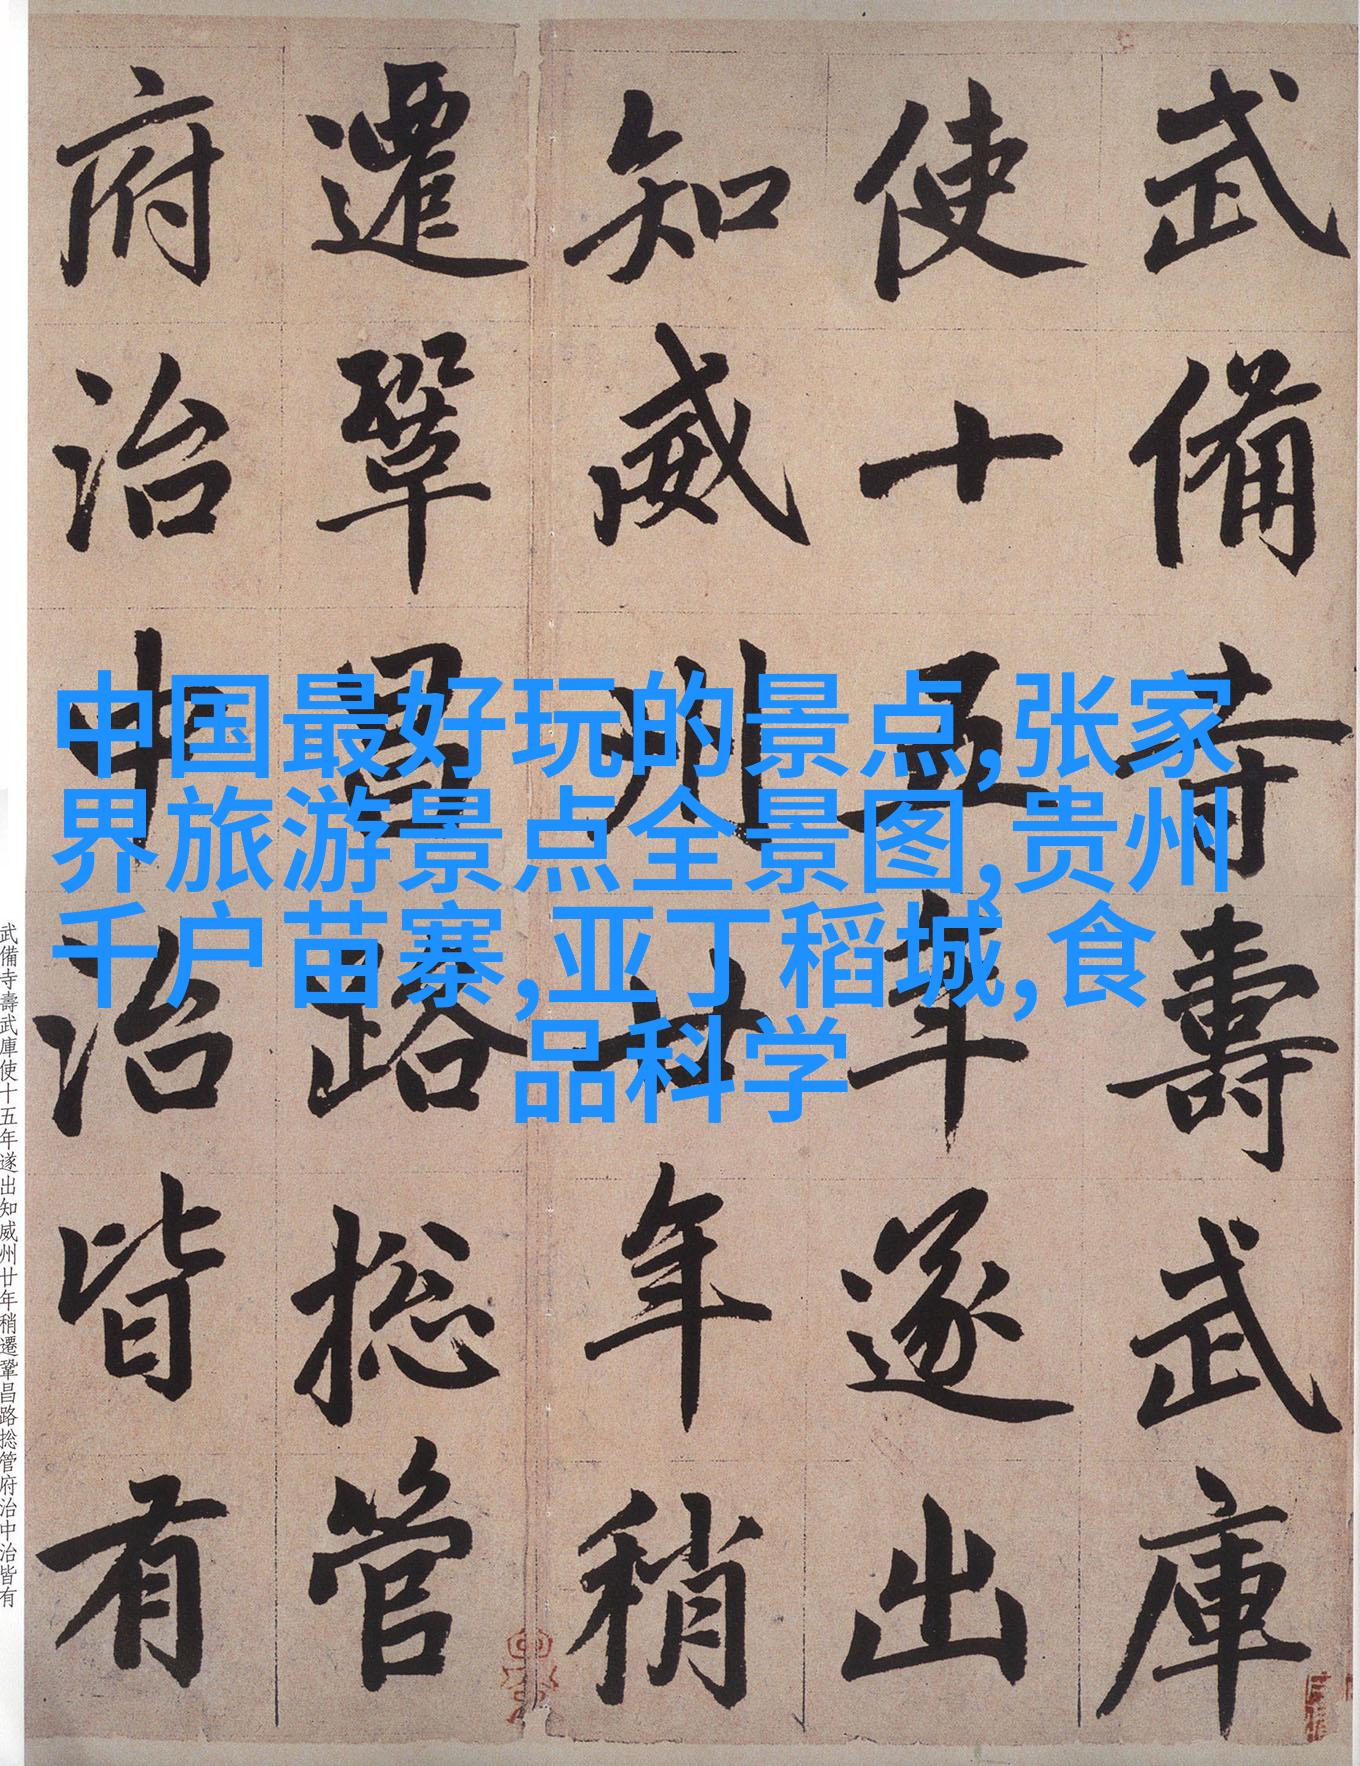 中国最好玩的景点,张家
界旅游景点全景图,贵州
千户苗寨,亚丁稻城,食
品科学
武備寺壽武庫
使十五年遂出
知威州廿年稍
遷鞏昌路捴管
府治中治皆有
武備寺壽武庫使十五年遂出知威州廿年稍遷鞏昌路捴管府治中治皆有